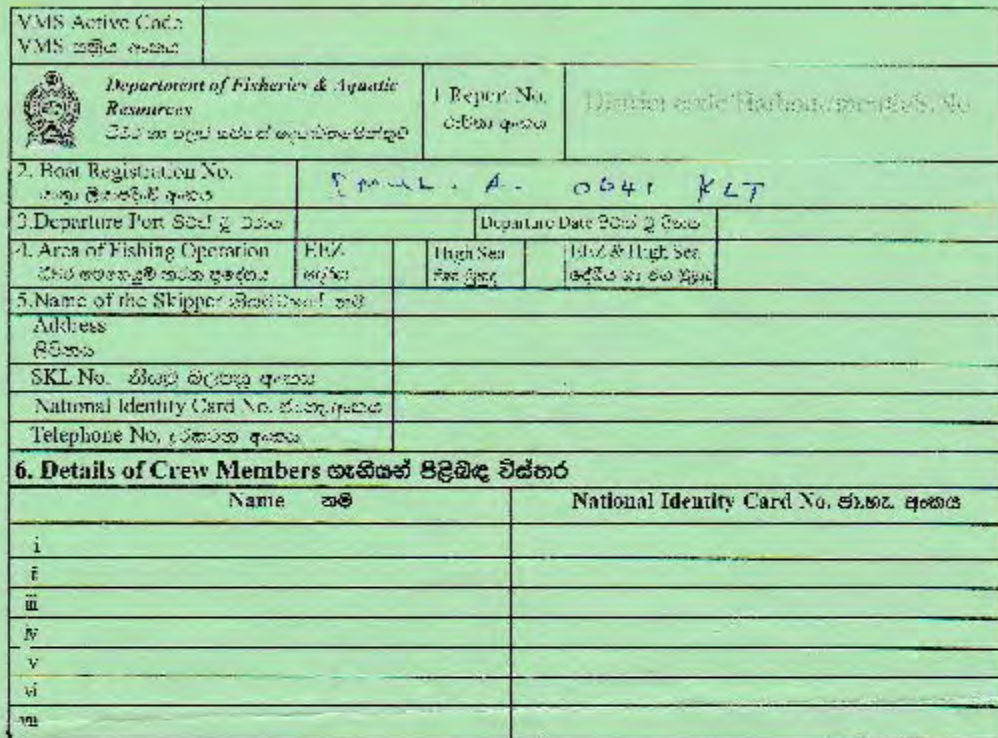 VMS Active Code
VMS සක්‍රිය අංකය
Department of Fisheries & Aquatic
Resources
ධීවර හා ජලජ සම්පත් දෙපාර්තමේන්තුව
1 Report No.
වාර්තා අංකය
District code/Harbour/month/S.No
2. Boat Registration No.
යාත්‍රා ලියාපදිංචි අංකය
IMUL. A. 0641 KLT
3.Departure Port පිටත් වූ වරාය
Departure Date පිටත් වූ දිනය
4. Area of Fishing Operation
EEZ
High Sea
EEZ & High Sea
ධීවර මෙහෙයුම් කරන ප්‍රදේශය
5.Name of the Skipper නියමුවාගේ නම
Address
ලිපිනය
SKL No. නියමු බලපත්‍ර අංකය
National Identity Card No. ජා.හැ.අංකය
Telephone No. දුරකථන අංකය
6. Details of Crew Members ගැනියන් පිළිබඳ විස්තර
Name නම
National Identity Card No. ජා.හැ. අංකය
i
ii
iii
iv
v
vi
vii